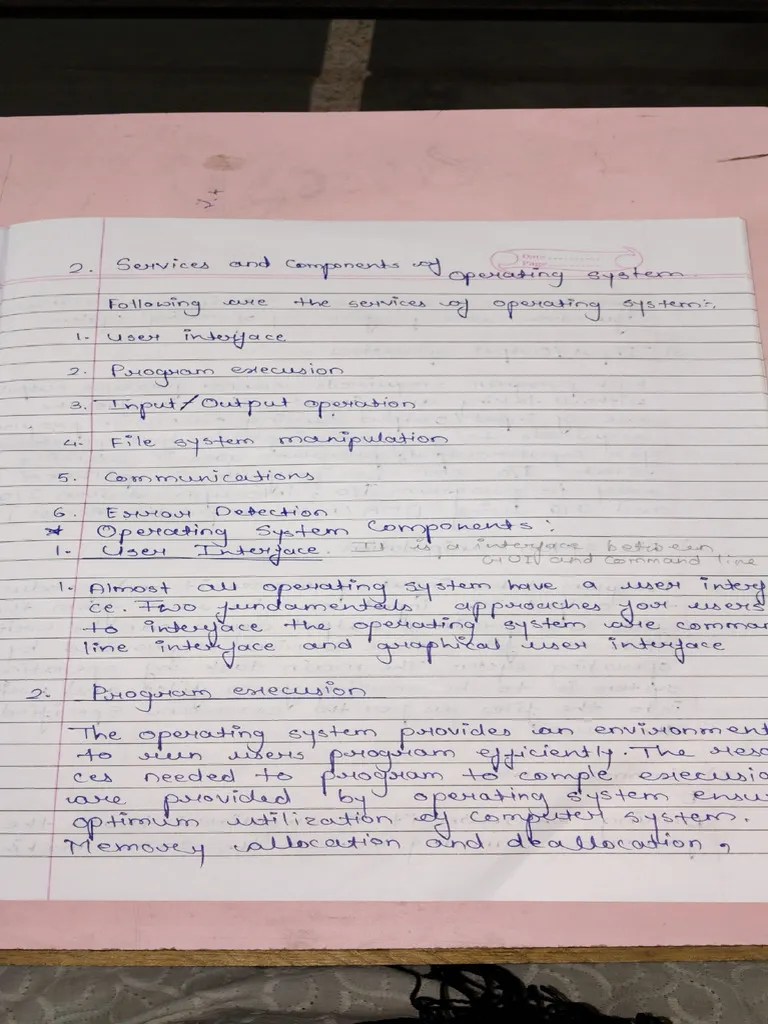 Date
Page
2. Services and Components of operating system
Following are the services of operating system:-
1. User interface
2. Program execusion
3. Input/Output operation
4. File system manipulation
5. Communications
6. Error Detection
* Operating System Components:
1- User Interface. It is a interface between
GUI and Command line
1. Almost all operating system have a user interf
ce. Two fundamentals approaches for users
to interface the operating system are comman
line interface and graphical user interface
2. Program execusion
The operating system provides an environment
to run users program efficiently. The reso
ces needed to program to comple execusio
are provided by operating system ensu
optimum utilization of computer system.
Memory allocation and deallocation,